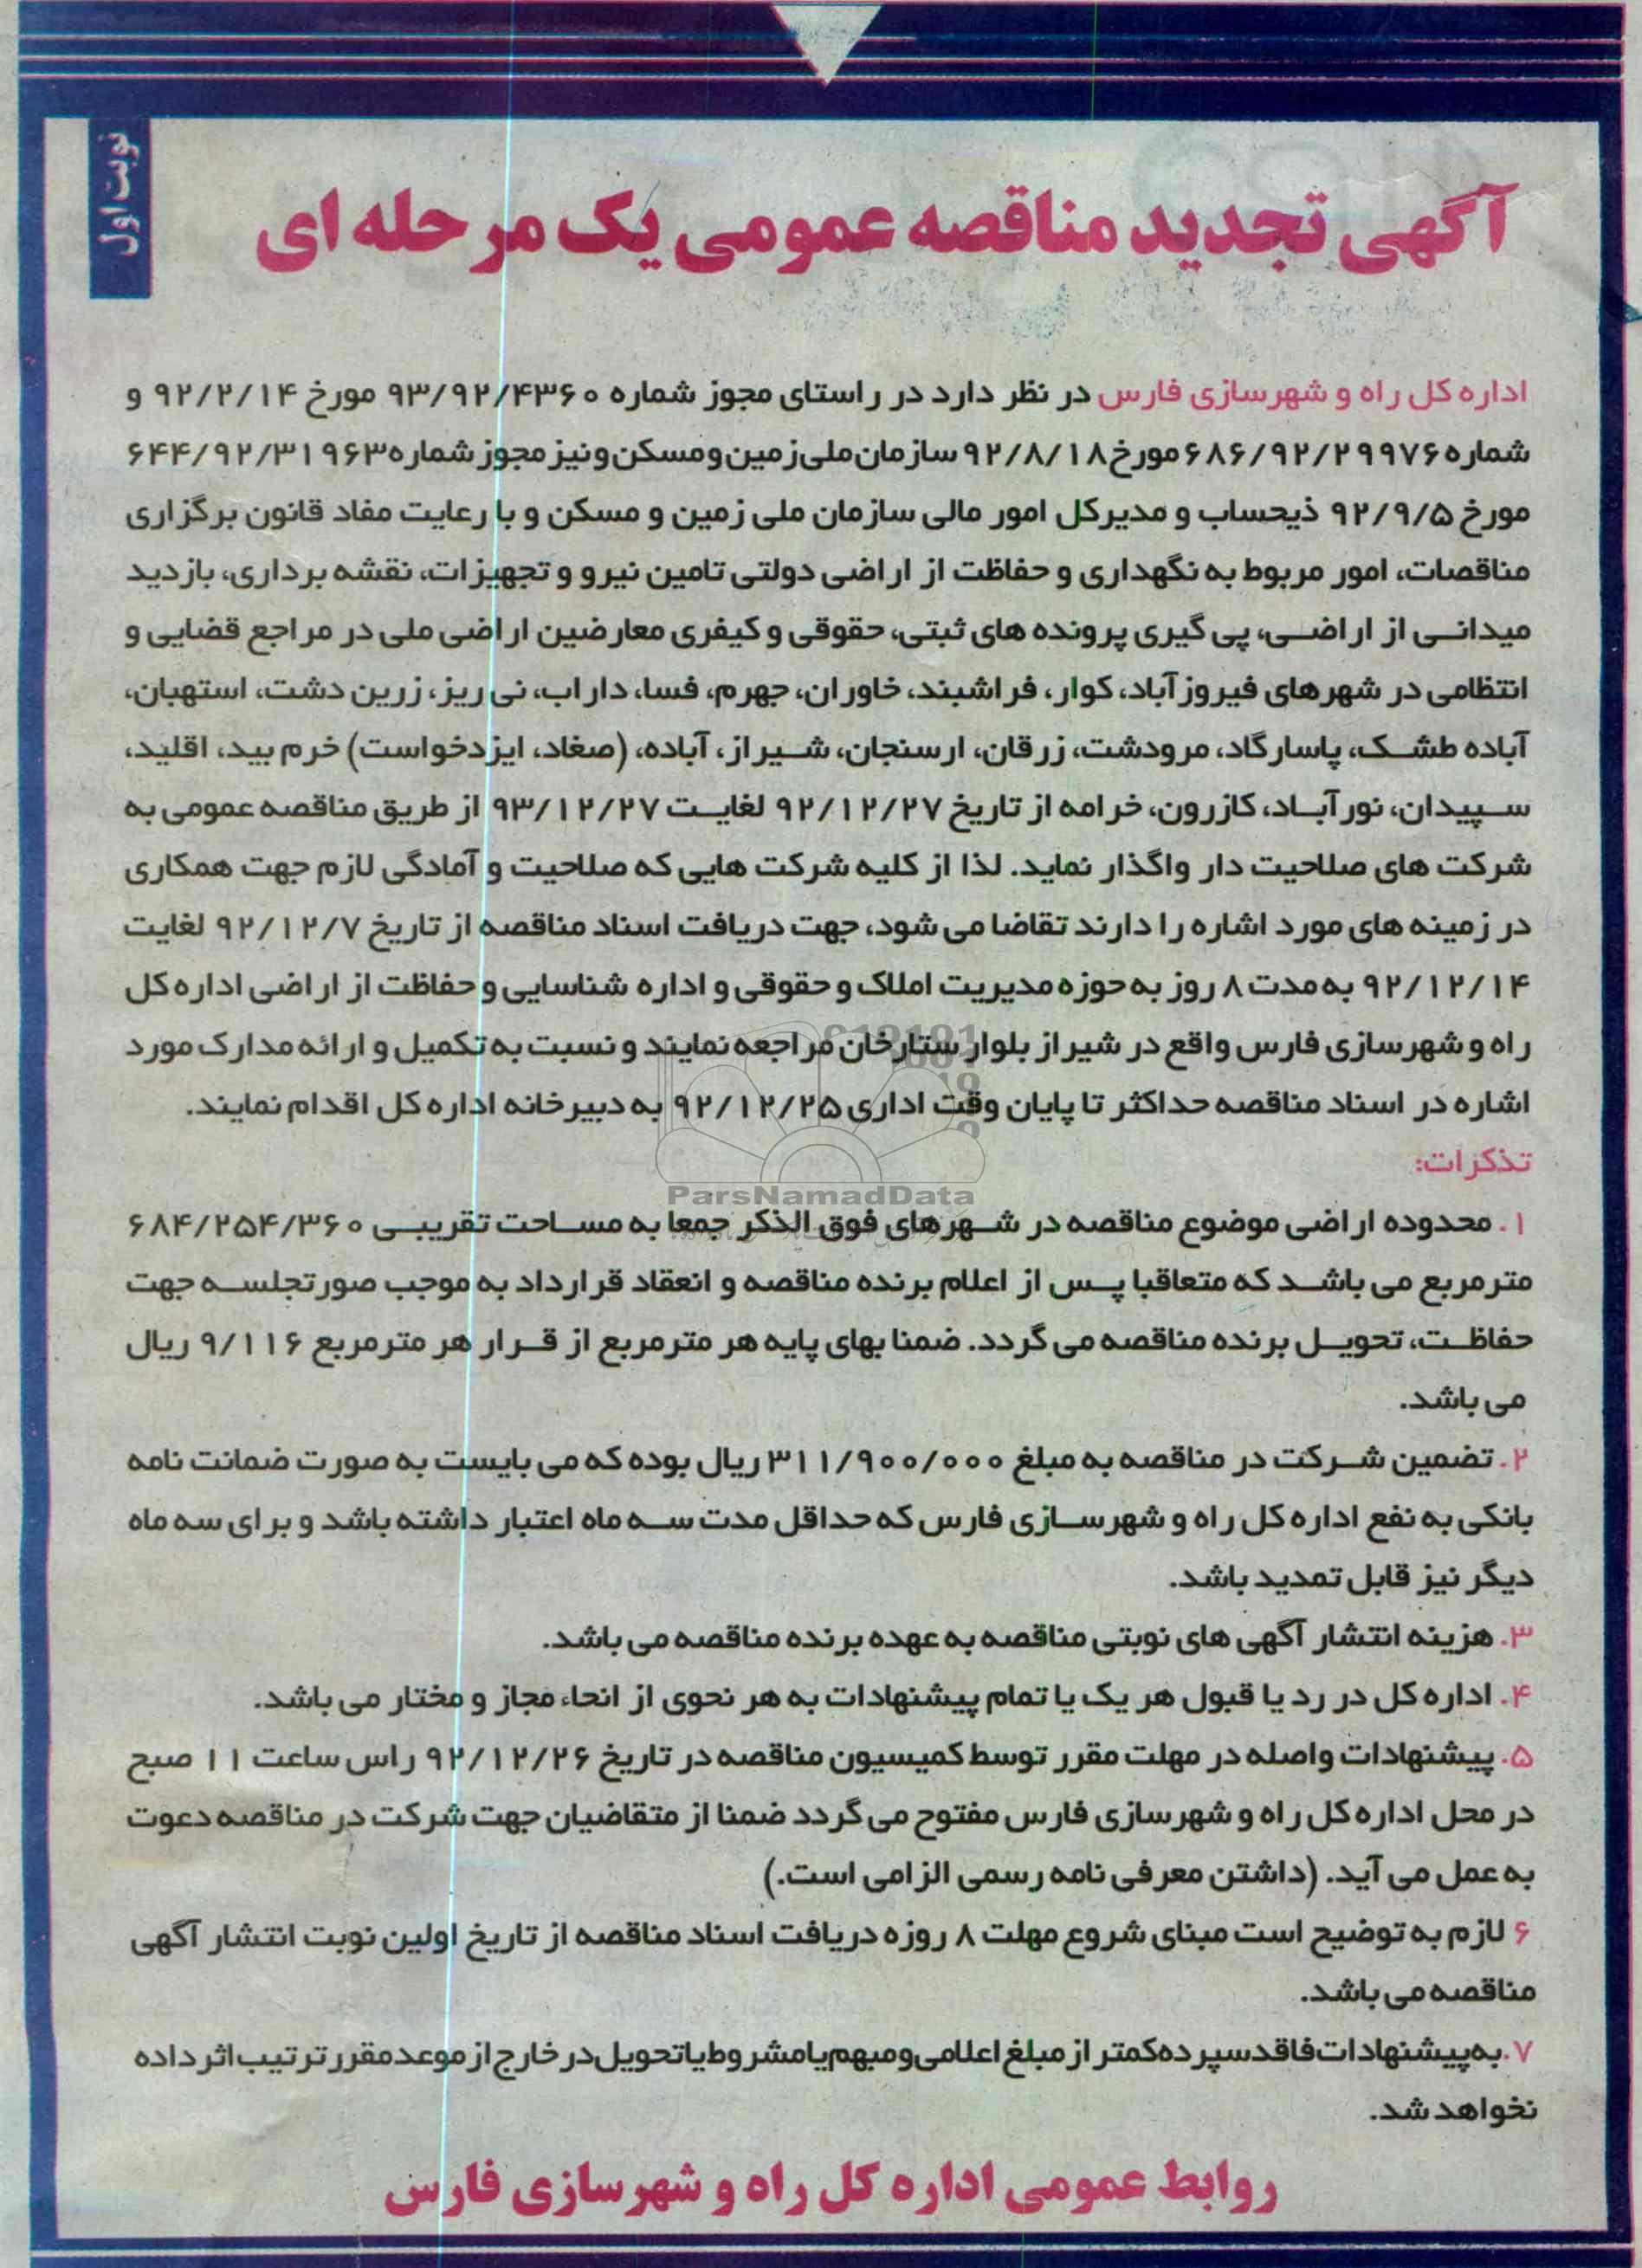 نوبت اول
آگهی تجدید مناقصه عمومی یک مرحله ای
اداره کل راه و شهرسازی فارس در نظر دارد در راستای مجوز شماره ۹۳/۹۲/۴۳۶۰ مورخ ۹۲/۲/۱۴ و
شماره ۶۸۶/۹۲/۲۹۹۷۶ مورخ ۹۲/۸/۱۸ سازمان ملی زمین و مسکن و نیز مجوز شماره ۶۴۴/۹۲/۳۱۹۶۳
مورخ ۹۲/۹/۵ ذیحساب و مدیرکل امور مالی سازمان ملی زمین و مسکن و با رعایت مفاد قانون برگزاری
مناقصات، امور مربوط به نگهداری و حفاظت از اراضی دولتی تامین نیرو و تجهیزات، نقشه برداری، بازدید
میدانی از اراضی، پی گیری پرونده های ثبتی، حقوقی و کیفری معارضین اراضی ملی در مراجع قضایی و
انتظامی در شهرهای فیروزآباد، کوار، فراشبند، خاوران، جهرم، فسا، داراب، نی ریز، زرین دشت، استهبان،
آباده طشک، پاسارگاد، مرودشت، زرقان، ارسنجان، شیراز، آباده، (صغاد، ایزدخواست) خرم بید، اقلید،
سپیدان، نورآباد، کازرون، خرامه از تاریخ ۹۲/۱۲/۲۷ لغایت ۹۳/۱۲/۲۷ از طریق مناقصه عمومی به
شرکت های صلاحیت دار واگذار نماید. لذا از کلیه شرکت هایی که صلاحیت و آمادگی لازم جهت همکاری
در زمینه های مورد اشاره را دارند تقاضا می شود، جهت دریافت اسناد مناقصه از تاریخ ۹۲/۱۲/۷ لغایت
۹۲/۱۲/۱۴ به مدت ۸ روز به حوزه مدیریت املاک و حقوقی و اداره شناسایی و حفاظت از اراضی اداره کل
راه و شهرسازی فارس واقع در شیراز بلوار ستارخان مراجعه نمایند و نسبت به تکمیل و ارائه مدارک مورد
اشاره در اسناد مناقصه حداکثر تا پایان وقت اداری ۹۲/۱۲/۲۵ به دبیرخانه اداره کل اقدام نمایند.
تذکرات:
ParsNamadData
۱. محدوده اراضی موضوع مناقصه در شهرهای فوق الذکر جمعا به مساحت تقریبی ۶۸۴/۲۵۴/۳۶۰
مترمربع می باشد که متعاقبا پس از اعلام برنده مناقصه و انعقاد قرارداد به موجب صورتجلسه جهت
حفاظت، تحویل برنده مناقصه می گردد. ضمنا بهای پایه هر مترمربع از قرار هر مترمربع ۹/۱۱۶ ریال
می باشد.
۲. تضمین شرکت در مناقصه به مبلغ ۳۱۱/۹۰۰/۰۰۰ ریال بوده که می بایست به صورت ضمانت نامه
بانکی به نفع اداره کل راه و شهرسازی فارس که حداقل مدت سه ماه اعتبار داشته باشد و برای سه ماه
دیگر نیز قابل تمدید باشد.
۳. هزینه انتشار آگهی های نوبتی مناقصه به عهده برنده مناقصه می باشد.
۴. اداره کل در رد یا قبول هر یک یا تمام پیشنهادات به هر نحوی از انحاء مجاز و مختار می باشد.
۵. پیشنهادات واصله در مهلت مقرر توسط کمیسیون مناقصه در تاریخ ۹۲/۱۲/۲۶ راس ساعت ۱۱ صبح
در محل اداره کل راه و شهرسازی فارس مفتوح می گردد ضمنا از متقاضیان جهت شرکت در مناقصه دعوت
به عمل می آید. (داشتن معرفی نامه رسمی الزامی است.)
۶ لازم به توضیح است مبنای شروع مهلت ۸ روزه دریافت اسناد مناقصه از تاریخ اولین نوبت انتشار آگهی
مناقصه می باشد.
۷. به پیشنهادات فاقد سپرده کمتر از مبلغ اعلامی و مبهم یا مشروط یا تحویل در خارج از موعد مقرر ترتیب اثر داده
نخواهد شد.
روابط عمومی اداره کل راه و شهرسازی فارس